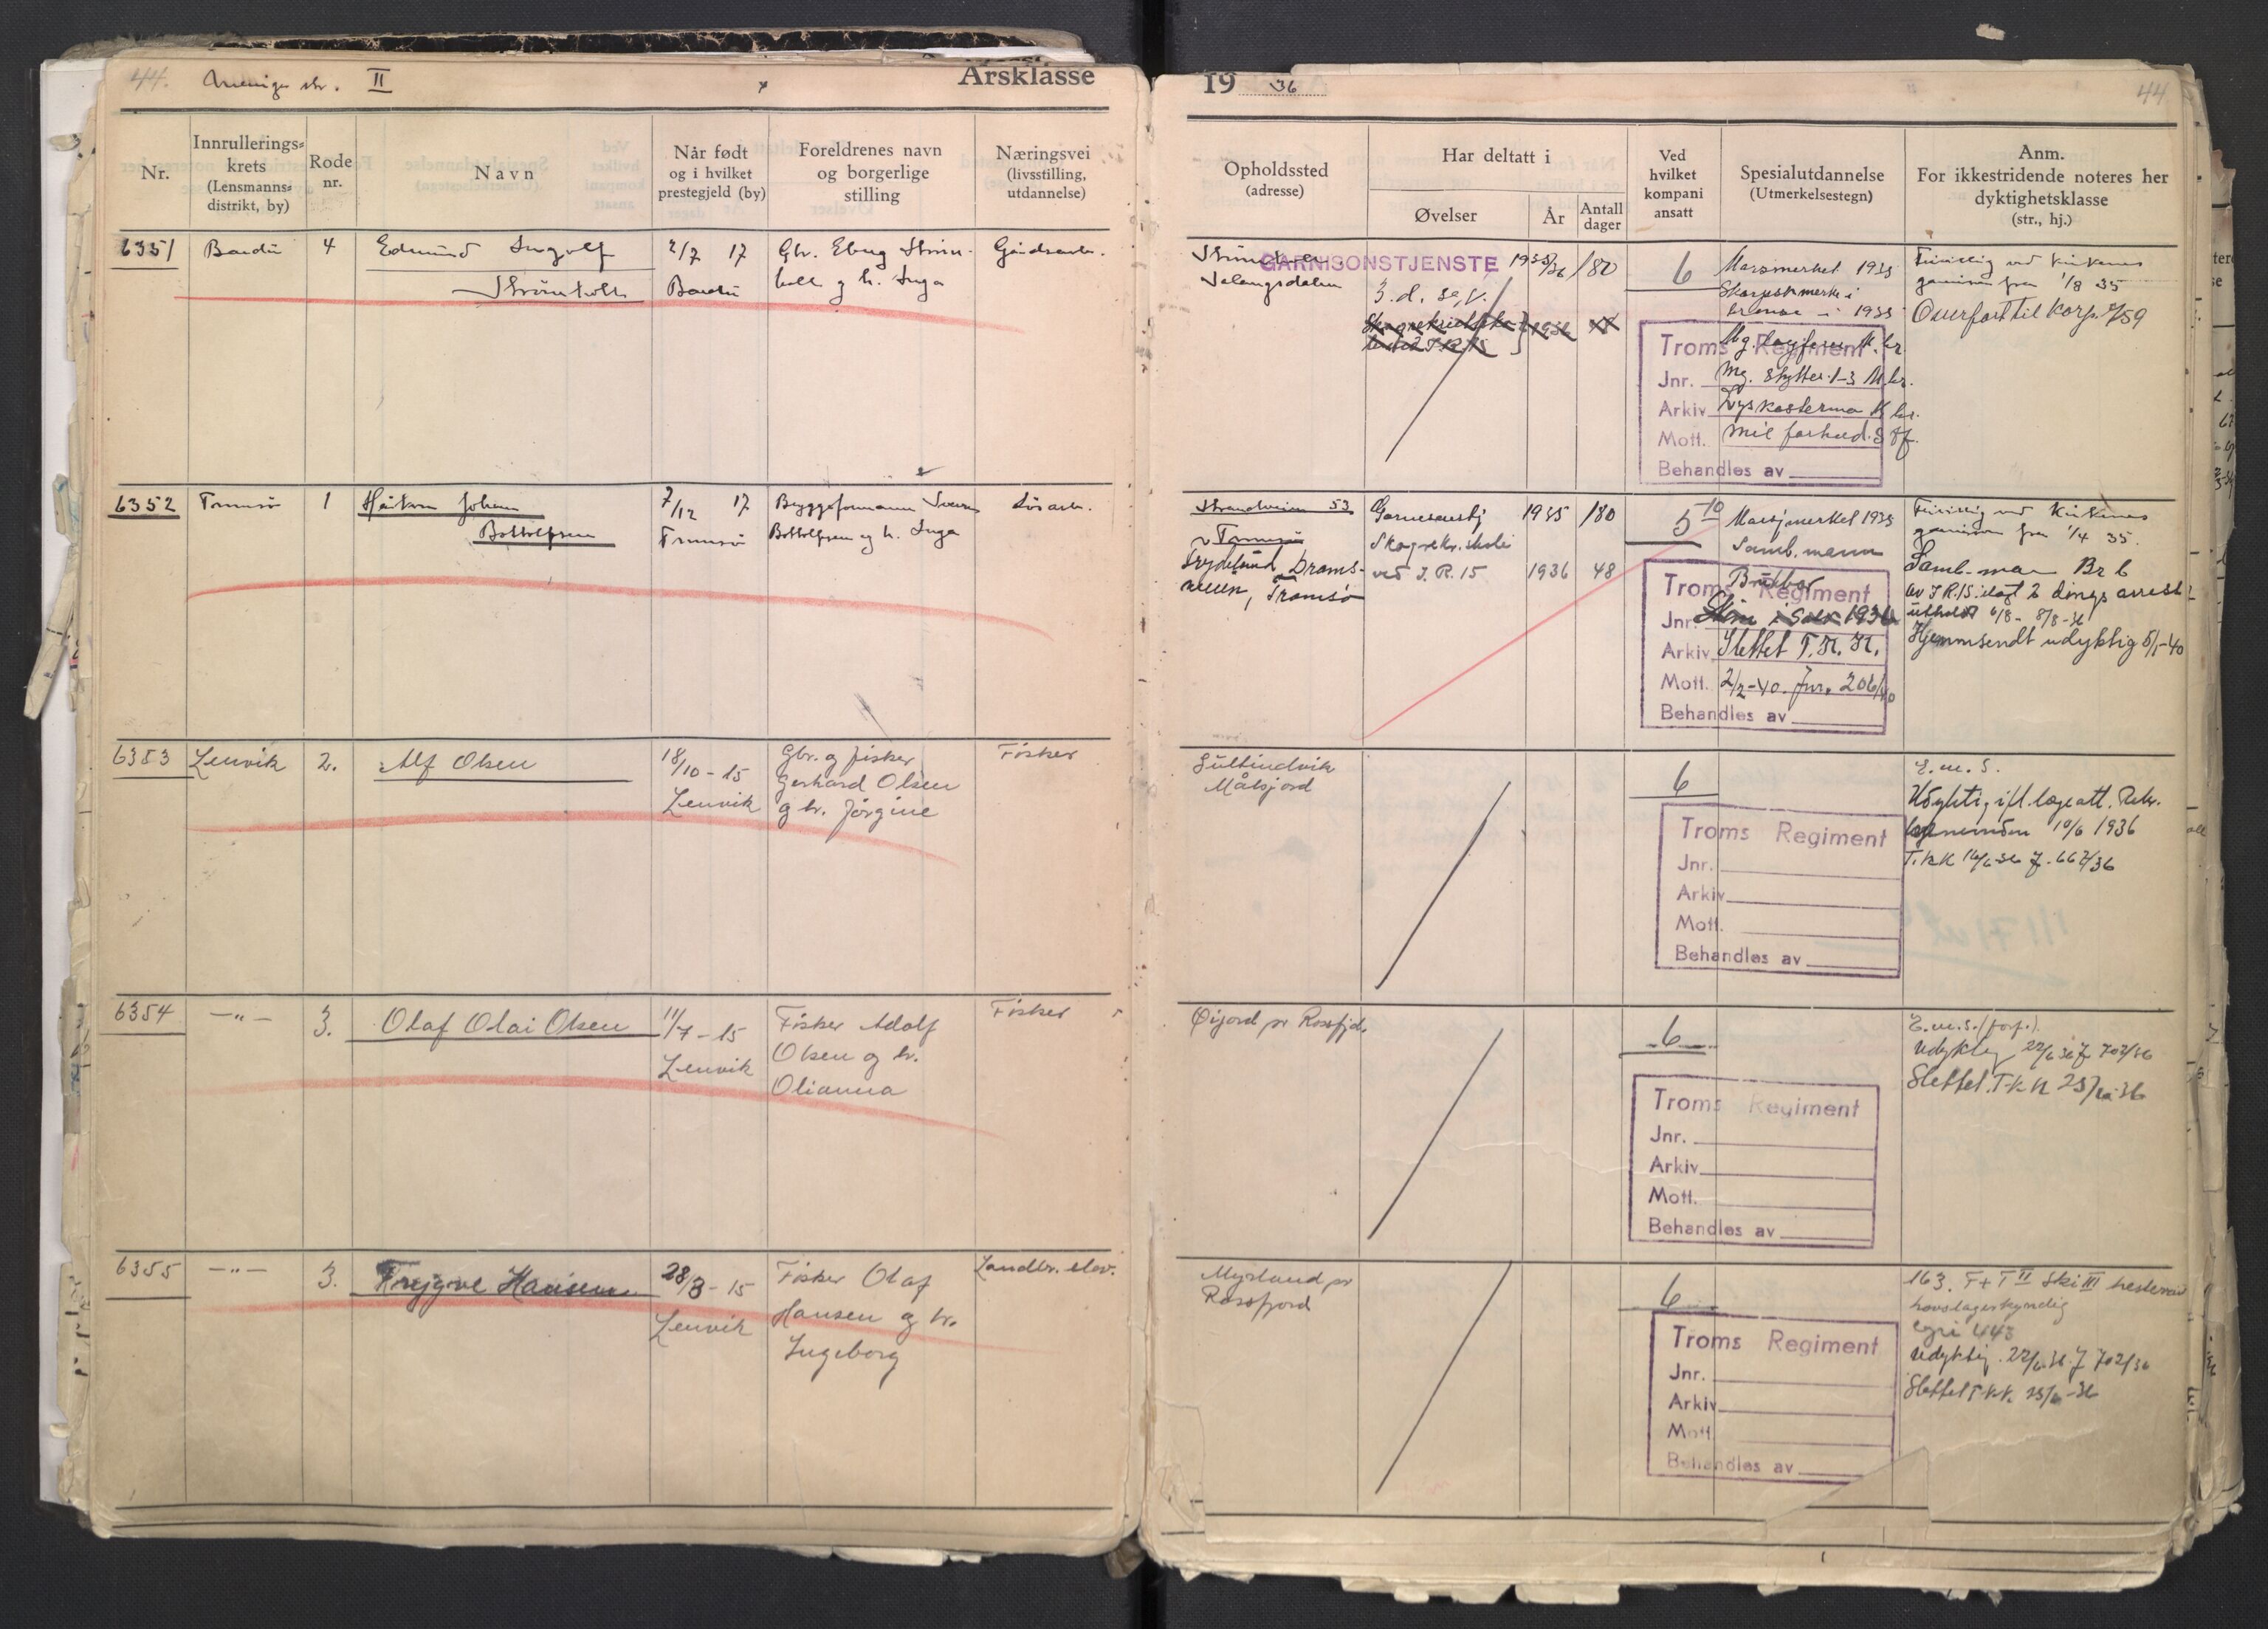 44.
II
Årsklasse
Nr.
Innrullerings-
krets
(Lensmanns-
distrikt, by)
Rode
nr.
Navn
Når født
og i hvilket
prestegjeld (by)
Foreldrenes navn
og borgerlige
stilling
Næringsvei
(livsstilling,
utdannelse)
6351
Bardu
4
Edmund Ingolf
Strømholt
2/7 17
Bardu
Gbr. Ebug Strøm-
holt og h. Inga
Gårdsarb.
6352
Tromsø
1
Håkon Johan
Bottolfsen
7/12 17
Tromsø
Byggeformann
Bottolfsen og h. Inga
Løsarb.
6353
Lenvik
2.
Alf Olsen
18/10 - 15
Lenvik
Gbr. og fisker
Gerhard Olsen
og h. Jørgine
Fisker
6354
— " —
3.
Olaf Olai Olsen
11/7 - 15
Lenvik
Fisker Adolf
Olsen og h.
Olianna
Fisker
6355
— " —
3.
Trygve Hansen
28/8 - 15
Lenvik
Fisker Olaf
Hansen og h.
Ingeborg
Landbr. elev.
19 36
44
Opholdssted
(adresse)
Har deltatt i
Øvelser
År
Antall
dager
Ved
hvilket
kompani
ansatt
Spesialutdannelse
(Utmerkelsestegn)
Anm.
For ikkestridende noteres her
dyktighetsklasse
(str., hj.)
Salangsdalen
GARNISONSTJENSTE
1935/36
180
3. d. se, v.
1936
6
Marsmerket 1935
Skarpsk.merke i
bronse - " - 1935
Mg. skytter 1-3 M.br.
Frivillig ved Kirkenes
garnison fra 1/8 35
Overført til Korp.
Troms Regiment
Jnr.
Arkiv
Mott.
Behandles av
Strandveien 53
Tromsø
Trydelund, Drams-
veien, Tromsø
Garnisonstj
1935
180
Skogrekr.skole
ved I.R. 15
1936
48
5
10
Marsjmerket 1935
Samb. mann
Slettet T.K.K.
2/2-40. Jnr. 206/40
Frivillig ved Kirkenes
garnison fra 1/4 35.
Samb-man Br 6
av I.R.15. ilagt 2 døngs arrest
utholdt 6/8 - 8/8-36
Hjemmsendt udyktig 5/1-40
Troms Regiment
Jnr.
Arkiv
Mott.
Behandles av
Gultindvik
Målsjord
6
E.m.S.
Udyktig ifl. lægeatt. Rekr.
10/6 1936
T.K.K 16/6-36 J. 667/36
Troms Regiment
Jnr.
Arkiv
Mott.
Behandles av
Øijord pr Rossfjd.
6
E.m.S. (forf.).
Udyktig 22/6 36 J 702/36
Slettet. T.K.K 25/6-36
Troms Regiment
Jnr.
Arkiv
Mott.
Behandles av
Myrland pr
Rossfjord
6
163. F+T II Ski III hestevant
hovslagerkyndig
443
Udyktig. 22/6.36. J 702/36
Slettet T.K.K. 25/6-36
Troms Regiment
Jnr.
Arkiv
Mott
Behandles av